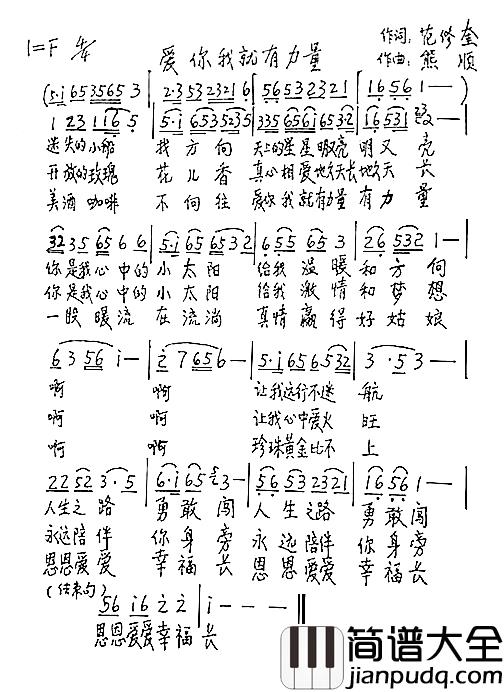 1=F 4/4
爱你我就有力量
作词：范修奎
作曲：熊 顺
(5·i 6535653 | 2·3532321 6 | 5653232321 | 1656 1—)
1 231 1165 | 5·i 6535235 | 3356561653 | 1653123—
迷失的小船 找方向 天上的星星明又亮 明又亮
开放的玫瑰 花儿香 真心相爱地久天长地久天长
美酒咖啡 不向往 爱你我就有力量有力量
32 35 65 6 6 | 5·i 65 6532 | 65565 3 | 26 532 1—
你是我心中的小太阳 给我温暖和方向
你是我心中的小太阳 给我激情和梦想
一股暖流在流淌 真情赢得好姑娘
6 3 56 i— | 2 7 656— | 5·i656532 | 3·53—
啊 啊 让我远行不迷航
啊 啊 让我心中爱火旺
啊 啊 珍珠黄金比不上
2252 3·5 | 6·i 65 3— | 5653 2321 | 1656 1—
人生之路 勇敢闯 人生之路 勇敢闯
永远陪伴 你身旁 永远陪伴 你身旁
恩恩爱爱 幸福长 恩恩爱爱 幸福长
(结束句)
56 i6 2 2 | i — — —
恩恩爱爱幸福长
简谱大全
jianpudq.com